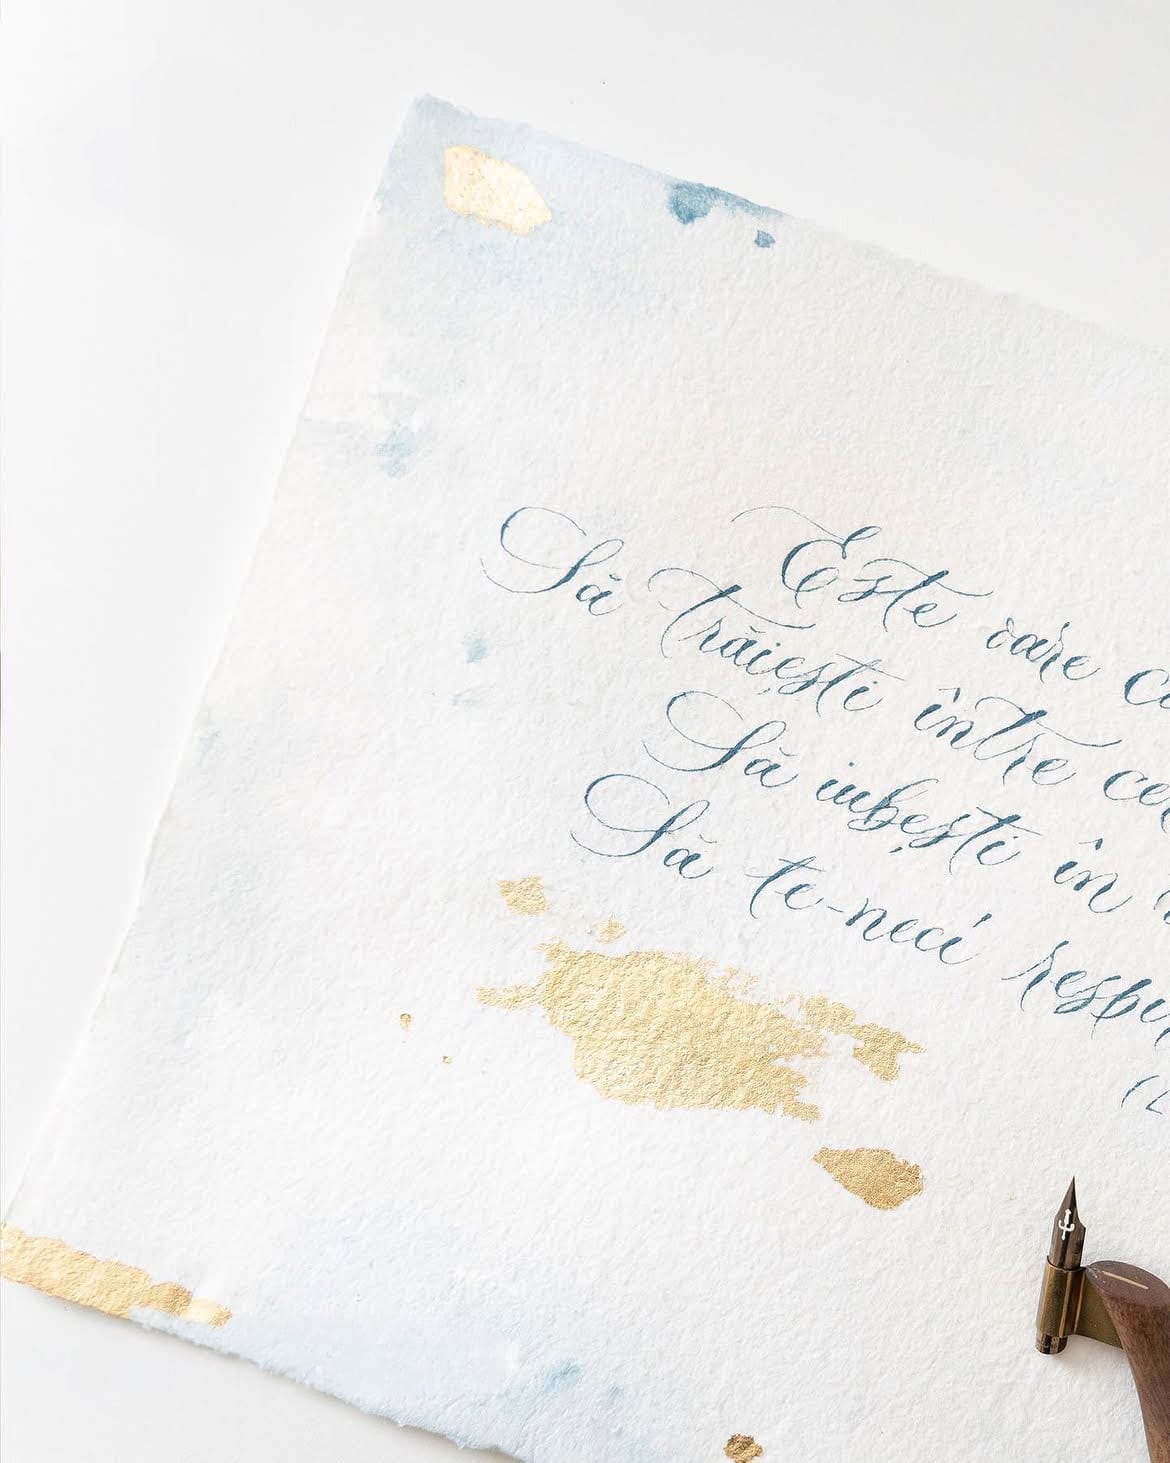 Este oare
Să trăiești între
Să iubești în
Să te-neci